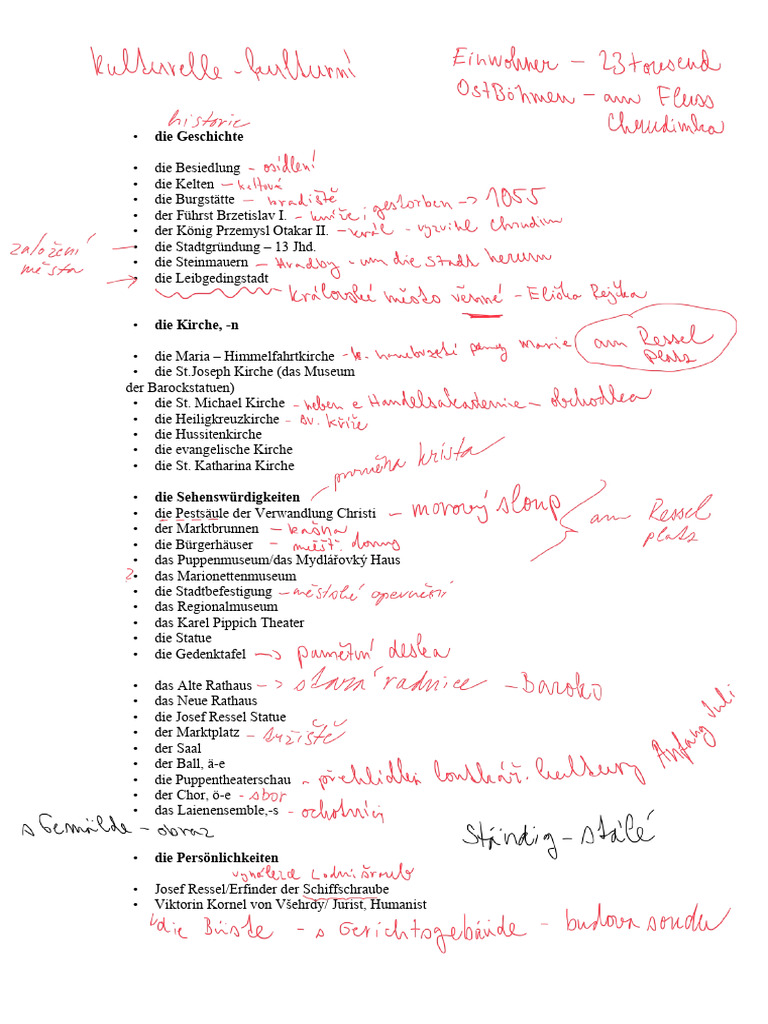 kulturelle - kulturní
Einwohner - 23 tousend
OstBöhmen - am Fluss
Chrudimka
historie
• die Geschichte
• die Besiedlung - osídlení
• die Kelten - keltová
• die Burgstätte - hradiště
• der Führst Brzetislav I. - kníže, gestorben -> 1055
• der König Przemysl Otakar II. - král - vyzvihl chrudim
založení města
• die Stadtgründung – 13 Jhd.
• die Steinmauern - Hradby - um die stadt herum
• die Leibgedingstadt
královské město věnné - Eliška Rejčka
• die Kirche, -n
• die Maria – Himmelfahrtkirche - k. panny marie am Ressel platz
• die St.Joseph Kirche (das Museum
der Barockstatuen)
• die St. Michael Kirche - neben e Handelsakademie - obchodka
• die Heiligkreuzkirche - sv. kříže
• die Hussitenkirche
• die evangelische Kirche
• die St. Katharina Kirche
proměna krista
• die Sehenswürdigkeiten
• die Pestsäule der Verwandlung Christi - morový sloup
• der Marktbrunnen - kašna
am Ressel platz
• die Bürgerhäuser - měšť. domy
• das Puppenmuseum/das Mydlářovký Haus
?• das Marionettenmuseum
• die Stadtbefestigung - městské opevnění
• das Regionalmuseum
• das Karel Pippich Theater
• die Statue
• die Gedenktafel -> pamětní deska
• das Alte Rathaus -> stará radnice - Baroko
• das Neue Rathaus
• die Josef Ressel Statue
• der Marktplatz - tržiště
• der Saal
• der Ball, ä-e
• die Puppentheaterschau - přehlídka loutkář. kultury Anfang Juli
• der Chor, ö-e - sbor
• das Laienensemble,-s - ochotníci
s Gemälde - obraz
Ständig - stálé
• die Persönlichkeiten
vynálezce Lodní šroub
• Josef Ressel/Erfinder der Schiffschraube
• Viktorin Kornel von Všehrdy/ Jurist, Humanist
die Büste - s Gerichtsgebäude - budova soudu